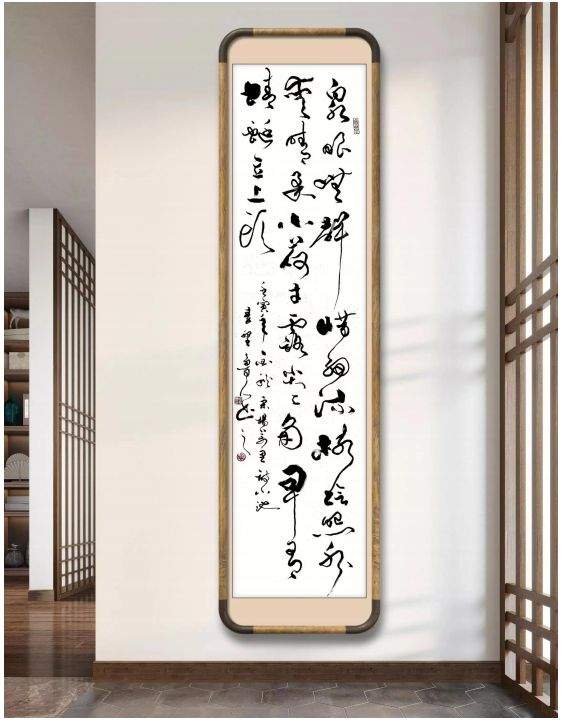 泉眼無聲惜細流樹陰照水
愛晴柔小荷才露尖尖角早有
蜻蜓立上頭
壬寅年宋楊萬里詩小池